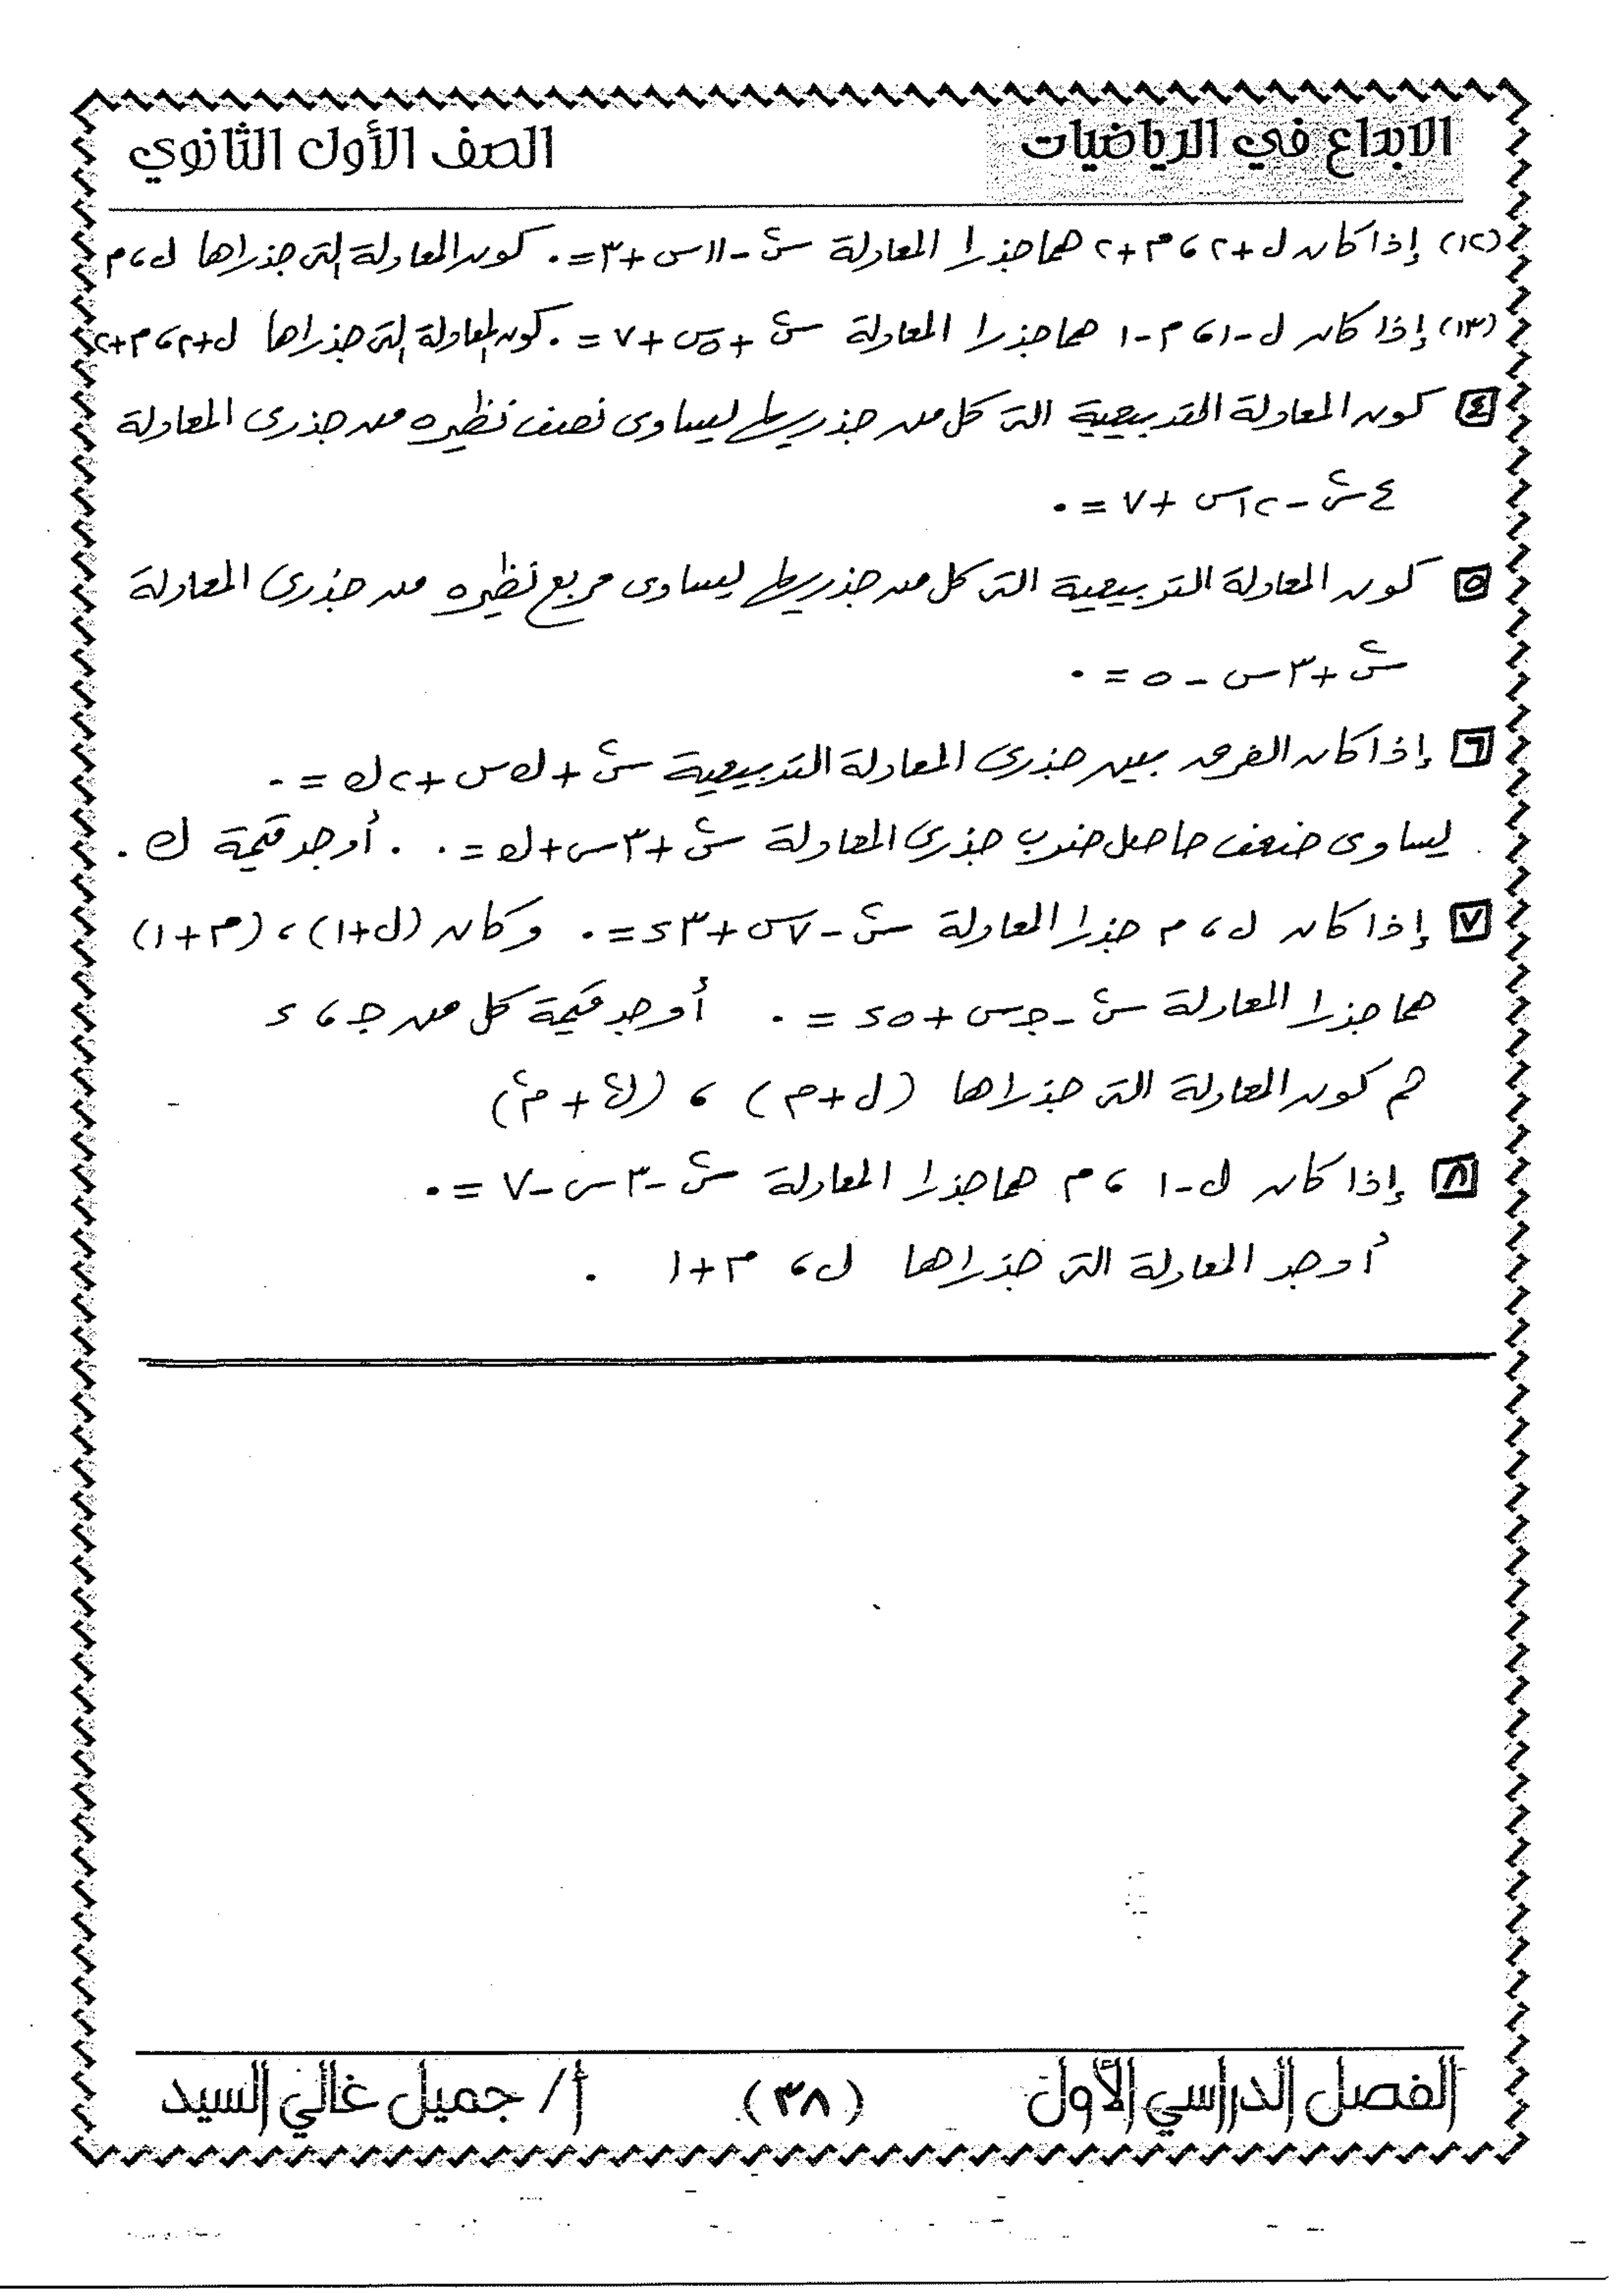 الابداع في الرياضيات
الصف الأول الثانوي
(١٢) إذا كان ل+٢ ، م+٢ هما جذرا المعادلة س٢ - ١١س + ٣ = ٠ كون المعادلة التى جذراها ل ، م
(١٣) إذا كان ل-١ ، م-١ هما جذرا المعادلة س٢ + ٥س + ٧ = ٠ كون المعادلة التى جذراها ل+٢ ، م+٢
٤ كون المعادلة التربيعية التى كل من جذريها يساوى نصف نظيره من جذرى المعادلة
٤س٢ - ١٢س + ٧ = ٠
٥ كون المعادلة التربيعية التى كل من جذريها يساوى مربع نظيره من جذرى المعادلة
س٢ + ٣س - ٥ = ٠
٦ إذا كان الفرق بين جذرى المعادلة التربيعية س٢ + ك س + ٢ك = ٠
يساوى ضعف حاصل ضرب جذرى المعادلة س٢ + ٣س + ك = ٠ . أوجد قيمة ك .
٧ إذا كان ل ، م جذرا المعادلة س٢ - ٧س + ٣د = ٠ وكان (ل+١) ، (م+١)
هما جذرا المعادلة س٢ - جـس + ٥د = ٠ أوجد قيمة كل من جـ ، د
ثم كون المعادلة التى جذراها (ل+م) ، (ل٢ + م٢)
٨ إذا كان ل-١ ، م هما جذرا المعادلة س٢ - ٣س - ٧ = ٠
أوجد المعادلة التى جذراها ل ، م+١ .
الفصل الدراسي الأول
(٣٨)
أ/ جميل غالي السيد